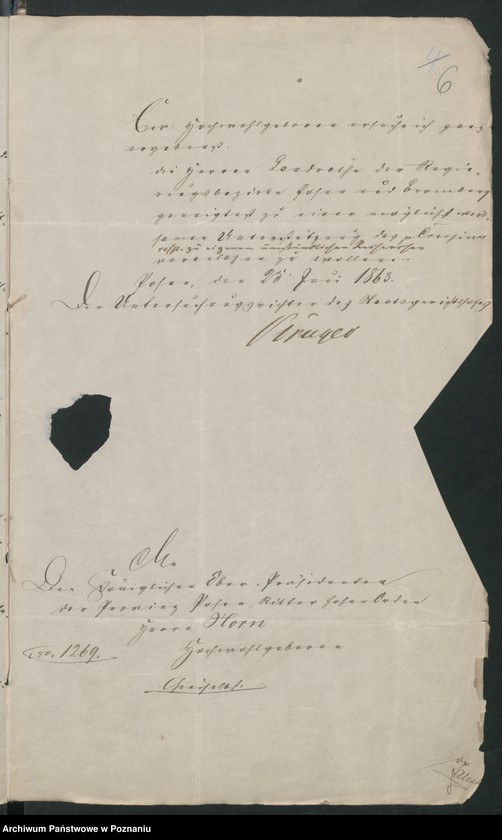 4
6
Ew. Hochwohlgeboren ersuche ich ganz
ergebenst
die Herren Landräthe der Regie-
rungsbezirke Posen und Bromberg
geneigtest zu einer möglichst
Unterstützung des
resp. zu eigenen umständlichen Recherchen
veranlassen zu wollen.
Posen, den 25 Juni 1863.
Der Untersuchungsrichter des Staatsgerichtshofes
Krüger
An
Den Königlichen Ober-Präsidenten
der Provinz Posen, Ritter hoher Orden
Herrn Horn
Hochwohlgeboren
No. 1269.
Archiwum Państwowe w Poznaniu